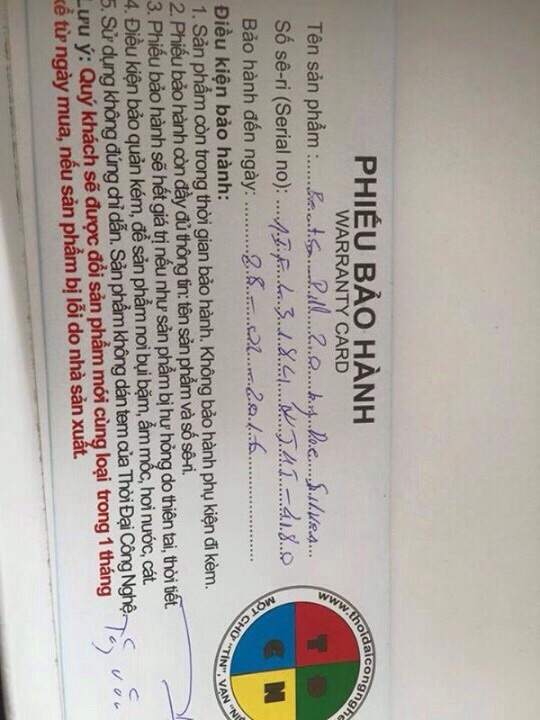 PHIẾU BẢO HÀNH
WARRANTY CARD
Tên sản phẩm : Beats Pill 2.0 by Dre Silver
Số sê-ri (Serial no):
Bảo hành đến ngày:
Điều kiện bảo hành:
1. Sản phẩm còn trong thời gian bảo hành. Không bảo hành phụ kiện đi kèm.
2. Phiếu bảo hành còn đầy đủ thông tin: tên sản phẩm và số sê-ri.
3. Phiếu bảo hành sẽ hết giá trị nếu như sản phẩm bị hư hỏng do thiên tai, thời tiết.
4. Điều kiện bảo quản kém, để sản phẩm nơi bụi bặm, ẩm mốc, hơi nước, cát.
5. Sử dụng không đúng chỉ dẫn. Sản phẩm không dán tem của Thời Đại Công Nghệ.
Lưu ý: Quý khách sẽ được đổi sản phẩm mới cùng loại trong 1 tháng
kể từ ngày mua, nếu sản phẩm bị lỗi do nhà sản xuất.
www.thoidaicongnghe
T D
C N
MỘT CHỮ "TÍN", VẠN